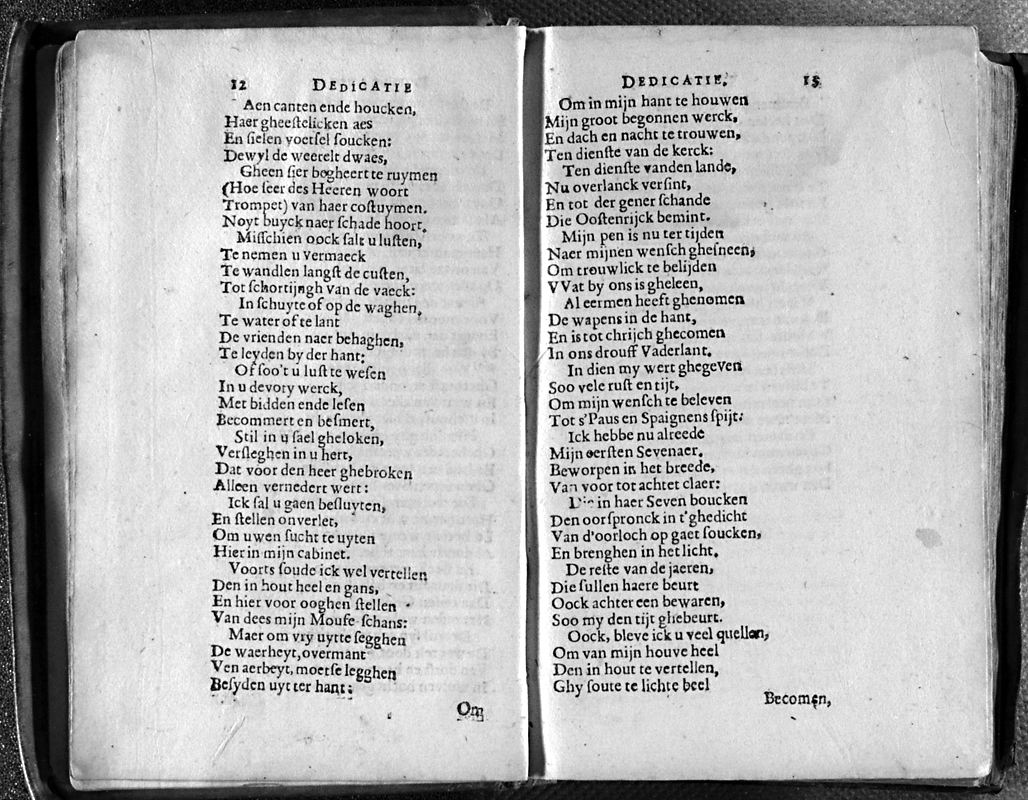 12 DEDICATIE
Aen canten ende houcken,
Haer gheestelicken aes
En sielen voetsel soucken:
Dewyl de weerelt dwaes,
Gheen sier begheert te ruymen
(Hoe seer des Heeren woort
Trompet) van haer costuymen.
Noyt buyck naer schade hoort.
Misschien oock salt u lusten,
Te nemen u vermaeck
Te wandlen langst de custen,
Tot schortijngh van de vaeck:
In schuyte of op de waghen,
Te water of te lant
De vrienden naer behaghen,
Te leyden by der hant:
Of soo't u lust te wesen
In u devoty werck,
Met bidden ende lesen
Becommert en besmert,
Stil in u sael gheloken,
Versleghen in u hert,
Dat voor den heer ghebroken
Alleen vernedert wert:
Ick sal u gaen besluyten,
En stellen onverlet,
Om uwen sucht te uyten
Hier in mijn cabinet.
Voorts soude ick wel vertellen
Den in hout heel en gans,
En hier voor ooghen stellen
Van dees mijn Mouse-schans:
Maer om vry uytte segghen
De waerheyt, overmant
Ven aerbeyt, moetse legghen
Besyden uyt ter hant:
Om
DEDICATIE. 15
Om in mijn hant te houwen
Mijn groot begonnen werck,
En dach en nacht te trouwen,
Ten dienste van de kerck:
Ten dienste vanden lande,
Nu overlanck versint,
En tot der gener schande
Die Oostenrijck bemint.
Mijn pen is nu ter tijden
Naer mijnen wensch ghesneen,
Om trouwlick te belijden
VVat by ons is gheleen,
Al eermen heeft ghenomen
De wapens in de hant,
En is tot chrijch ghecomen
In ons drouff Vaderlant.
In dien my wert ghegeven
Soo vele rust en tijt,
Om mijn wensch te beleven
Tot s'Paus en Spaignens spijt:
Ick hebbe nu alreede
Mijn eersten Sevenaer.
Beworpen in het breede,
Van voor tot achter claer:
Die in haer Seven boucken
Den oorspronck in t'ghedicht
Van d'oorloch op gaet soucken,
En brenghen in het licht.
De reste van de jaeren,
Die sullen haere beurt
Oock achter een bewaren,
Soo my den tijt ghebeurt.
Oock, bleve ick u veel quellen,
Om van mijn houve heel
Den in hout te vertellen,
Ghy soute te lichte beel
Becomen,